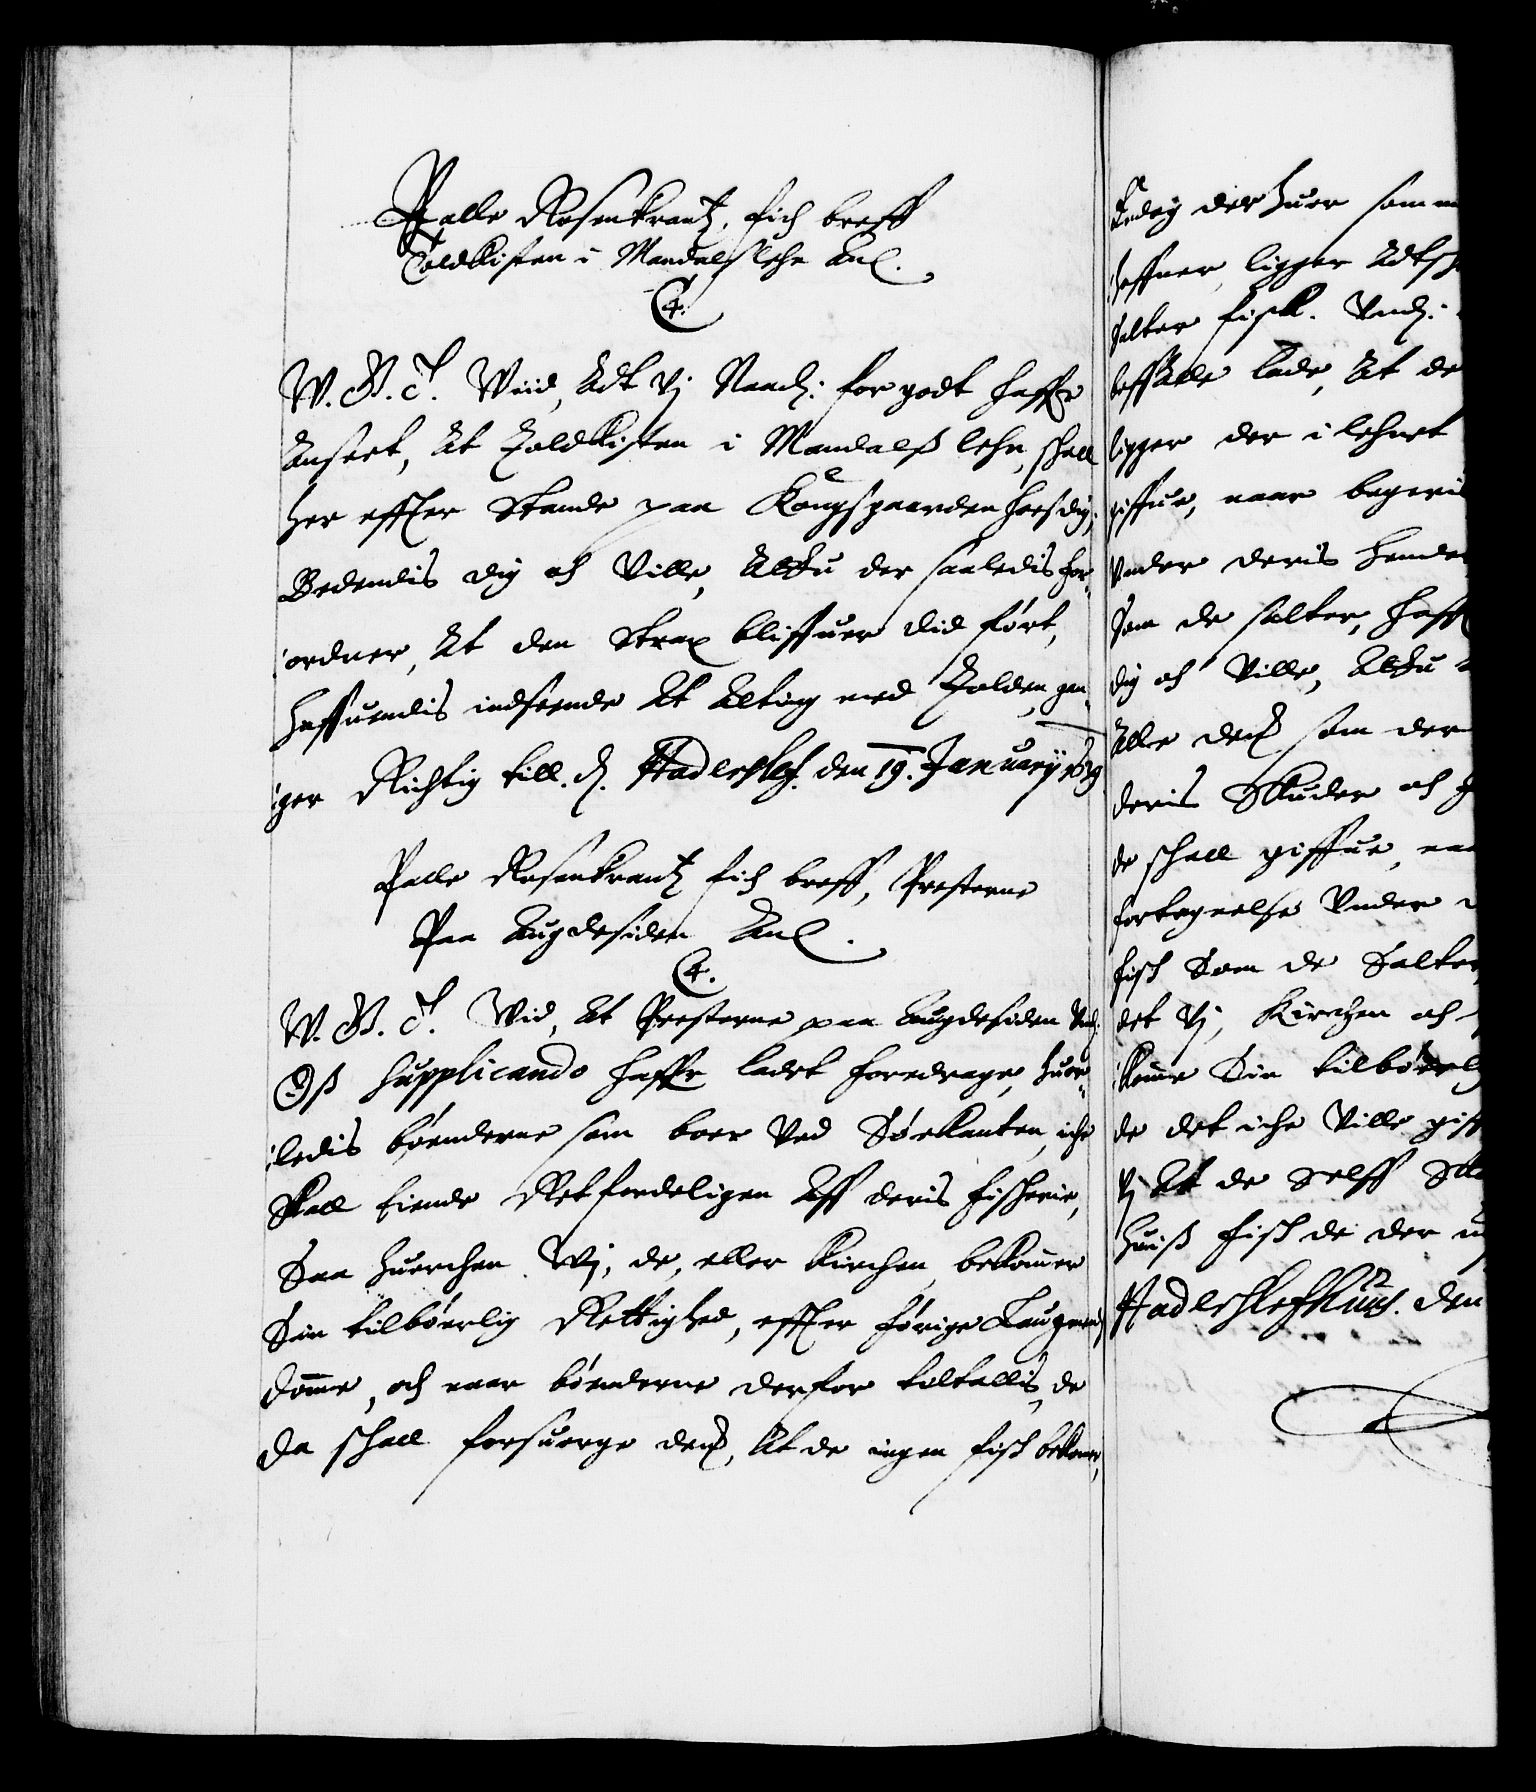 Palle Rosenkrantz, fich breff
Toldkisten i Mandalslehn Anl.
C4.
W. G. T. Wiid, Adt Vj Naad: for godt haffr
Anseet, At Toldkisten i Mandalß lehn, schall
her effter Stande paa Kongsgaarden hoes dig,
Bedendis dig och Ville, Attu der saaledis for-
ordner, At den Strax bliffuer did ført,
haffuendis indseende At Alting med Tolden gan-
ger Richtig till. d. Haderslef. den 19. January 1639
Palle Rosenkrantz fich breff, Presterne
Paa Augdesiden Anl.
C4.
W. G. T. Wid, At Presterne paa Augdesiden Und:
Oß supplicando haffr ladet foredrage, huor-
ledis bønderne som boer Ved Søekanten, iche
skall tiende Retferdeligen Aff deris fischerie,
Saa huerchen Wj, de, eller Kirchen bekommer
Sin tilbørlig Rettighed, effter forige Laugmend
domme, och naar bønderne derfor tiltallis, de
da schall forsuerge dend, At de ingen fisch bekomer,
Endog der huer som
haffner, ligger
salter fisk. Vnd:
beffalle lade, At de
ligger der i lehnet
giffue, naar begeris
Vnder deris hender
Som de salter, haff
dig och Ville, Attu
Alle dend som der
deris Skuder och
de schall giffue, naa
fortegnelse Vnder
fisch Som de Salter
det Vj, Kirchen och
komme Sin tilbørlig
de det iche Ville giff
Vj At de Selff
huiß fisch de der
Haderslefhuus. den